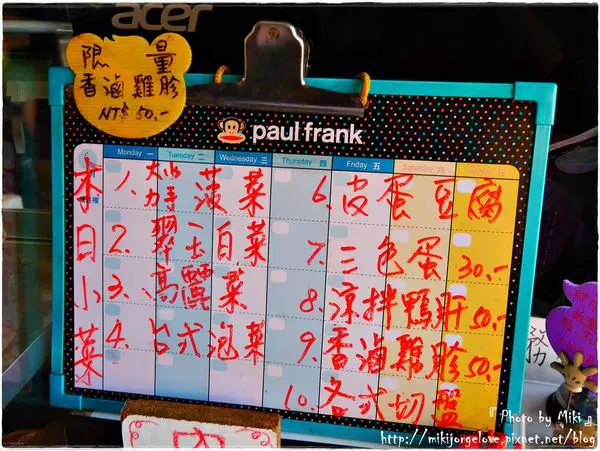 acer
限 量
香滷雞胗
NT$ 50.-
paul frank
Monday 一 Tuesday 二 Wednesday 三 Thursday 四 Friday 五 Saturday 六
本日小菜
1. 大力水手菠菜
2. 翠玉白菜
3. 高麗菜
4. 台式泡菜
6. 皮蛋豆腐
7. 三色蛋 30.-
8. 涼拌鴨肝 50.-
9. 香滷雞胗 50.-
10. 各式切盤
務
『Photo by Miki』
http://mikijorgelove.pixnet.net/blog